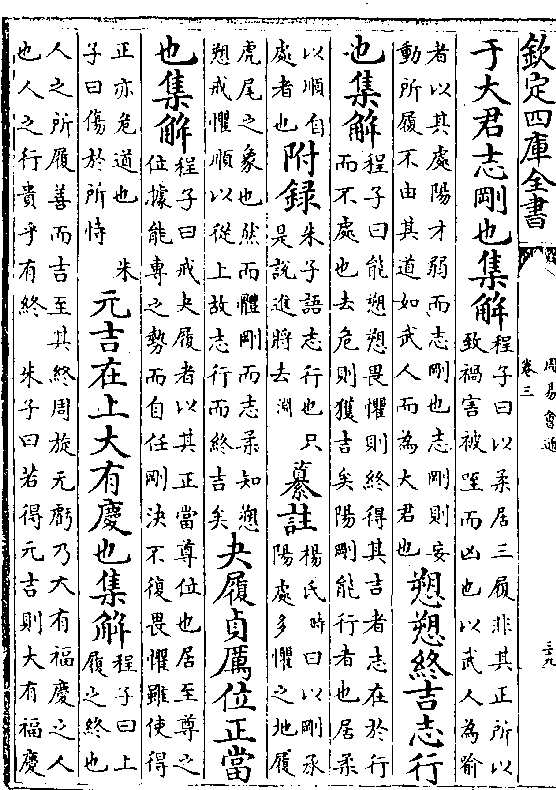 欽定四庫全書
周易會通
卷三
于大君志剛也集解
程子曰以柔居三履非其正所以
致禍害被咥而凶也以武人為喻
者以其處陽才弱而志剛也志剛則妄
動所履不由其道如武人而為大君也
愬愬終吉志行
也集解
程子曰能愬愬畏懼則終得其吉者志在於行
而不處也去危則獲吉矣陽剛能行者也居柔
以順自
處者也
附録
朱子語志行也只
是說進將去淵
纂註
楊氏時曰以剛承
陽處多懼之地履
虎尾之象也然而體剛而志柔知愬
愬戒懼順以從上故志行而終吉矣
夬履貞厲位正當
也集解
程子曰戒夬履者以其正當尊位也居至尊之
位據能專之勢而自任剛決不復畏懼雖使得
正亦危道也 朱
子曰傷於所恃
元吉在上大有慶也集解
程子曰上
履之終也
人之所履善而吉至其終周旋无虧乃大有福慶之人
也人之行貴乎有終 朱子曰若得元吉則大有福慶